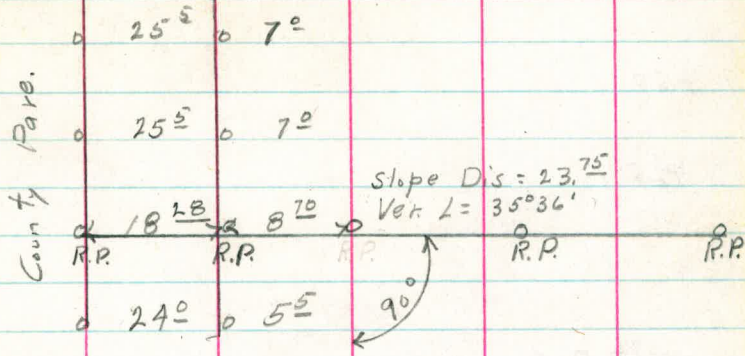 25⁵ 7⁰
County Pave.
25⁵ 7⁰
Slope Dis = 23.⁷⁵
Ver. L = 35°36'
18²⁸ 8⁷⁰
R.P. R.P. R.P. R.P. R.P.
24⁰ 5⁵ 90°